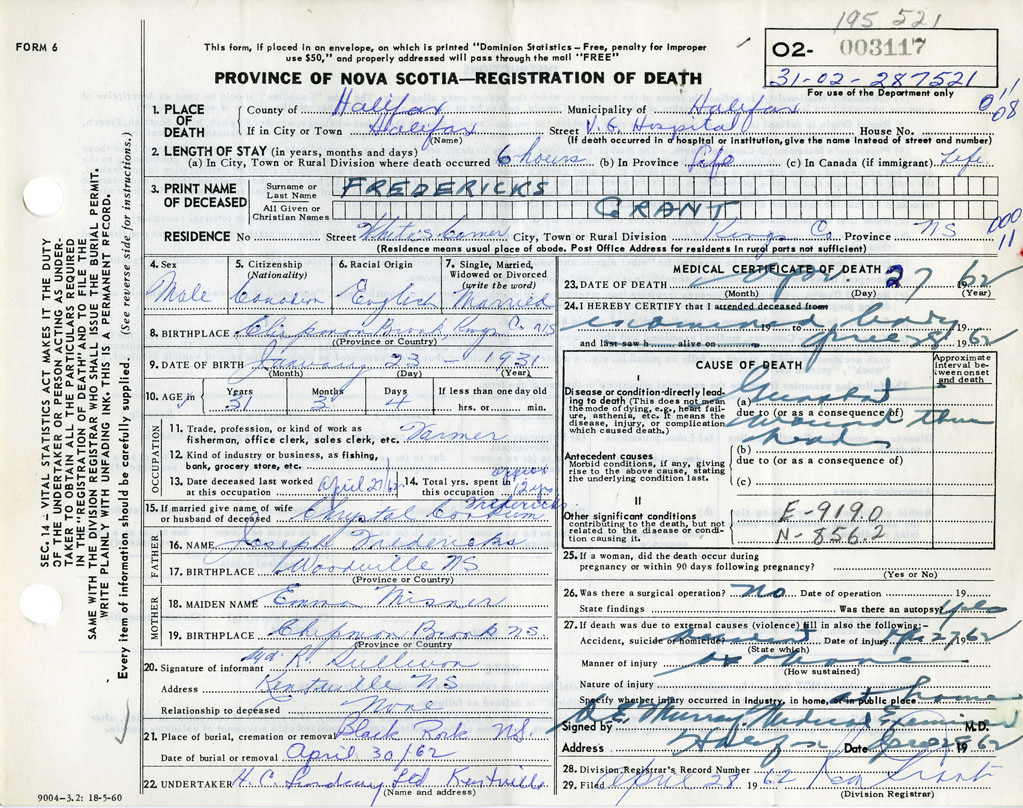 195 521
FORM 6
This form, if placed in an envelope, on which is printed "Dominion Statistics – Free, penalty for improper
use $50," and properly addressed will pass through the mail "FREE"
02- 003117
31-02-287521
For use of the Department only
PROVINCE OF NOVA SCOTIA—REGISTRATION OF DEATH
1. PLACE OF DEATH
County of Halifax Municipality of Halifax
If in City or Town Halifax Street V. G. Hospital House No.
(Name) (If death occurred in a hospital or institution, give the name instead of street and number)
11
08
2. LENGTH OF STAY (in years, months and days)
(a) In City, Town or Rural Division where death occurred 6 hours (b) In Province Life (c) In Canada (if immigrant) Life
3. PRINT NAME OF DECEASED
Surname or Last Name FREDERICKS
All Given or Christian Names GRANT
000
11
RESIDENCE No Street White's Corner City, Town or Rural Division Kings Co Province NS
(Residence means usual place of abode. Post Office Address for residents in rural parts not sufficient)
4. Sex Male
5. Citizenship (Nationality) Canadian
6. Racial Origin English
7. Single, Married, Widowed or Divorced (write the word) Married
8. BIRTHPLACE Chipman Brook Kings Co NS
(Province or Country)
9. DATE OF BIRTH January 23 – 1931
(Month) (Day) (Year)
10. AGE in Years 31 Months 3 Days 4 If less than one day old
hrs. or min.
OCCUPATION
11. Trade, profession, or kind of work as
fisherman, office clerk, sales clerk, etc. Farmer
12. Kind of industry or business, as fishing,
bank, grocery store, etc.
13. Date deceased last worked at this occupation April 27/62
14. Total yrs. spent in this occupation approx 12 yrs
15. If married give name of wife
or husband of deceased Chrystal Fredericks
FATHER
16. NAME Joseph Fredericks
17. BIRTHPLACE Woodville NS
(Province or Country)
MOTHER
18. MAIDEN NAME Emma Misner
19. BIRTHPLACE Chipman Brook NS.
(Province or Country)
20. Signature of informant R. Sullivan
Address Kentville NS
Relationship to deceased None
21. Place of burial, cremation or removal Black Rock NS.
Date of burial or removal April 30/62
22. UNDERTAKER H. C. Lindsay Ltd Kentville
(Name and address)
9004-3.2: 18-5-60
MEDICAL CERTIFICATE OF DEATH
23. DATE OF DEATH Apr 27 62
(Month) (Day) (Year)
24. I HEREBY CERTIFY that I attended deceased from
examined body 19 to 19
and last saw h alive on Apr 28 1962
CAUSE OF DEATH
Approximate interval between onset and death
I
Disease or condition directly leading to death (This does not mean the mode of dying, e.g., heart failure, asthenia, etc. It means the disease, injury, or complication which caused death.)
(a) Gunshot
due to (or as a consequence of)
wound
head
(b)
Antecedent causes
Morbid conditions, if any, giving rise to the above cause, stating the underlying condition last.
due to (or as a consequence of)
(c)
II
Other significant conditions contributing to the death, but not related to the disease or condition causing it.
E-919.0
N-856.2
25. If a woman, did the death occur during
pregnancy or within 90 days following pregnancy?
(Yes or No)
26. Was there a surgical operation? No Date of operation 19
State findings Was there an autopsy? Yes
27. If death was due to external causes (violence) fill in also the following:–
Accident, suicide or homicide? accident Date of injury Apr 27 62
(State which)
Manner of injury as above
(How sustained)
Nature of injury
Specify whether injury occurred in industry, in home, or in public place at home
Signed by D. E. Murray Medical Examiner M.D.
Address Halifax Date Apr 28 1962
28. Division Registrar's Record Number
29. Filed April 28 1962 Ken Grant
(Division Registrar)
SEC. 14 – VITAL STATISTICS ACT MAKES IT THE DUTY
OF THE UNDERTAKER OR PERSON ACTING AS UNDERTAKER
TO OBTAIN ALL THE PARTICULARS REQUIRED
IN THE "REGISTRATION OF DEATH" AND TO FILE THE
SAME WITH THE DIVISION REGISTRAR WHO SHALL ISSUE THE BURIAL PERMIT.
WRITE PLAINLY WITH UNFADING INK. THIS IS A PERMANENT RECORD.
Every item of information should be carefully supplied. (See reverse side for instructions.)